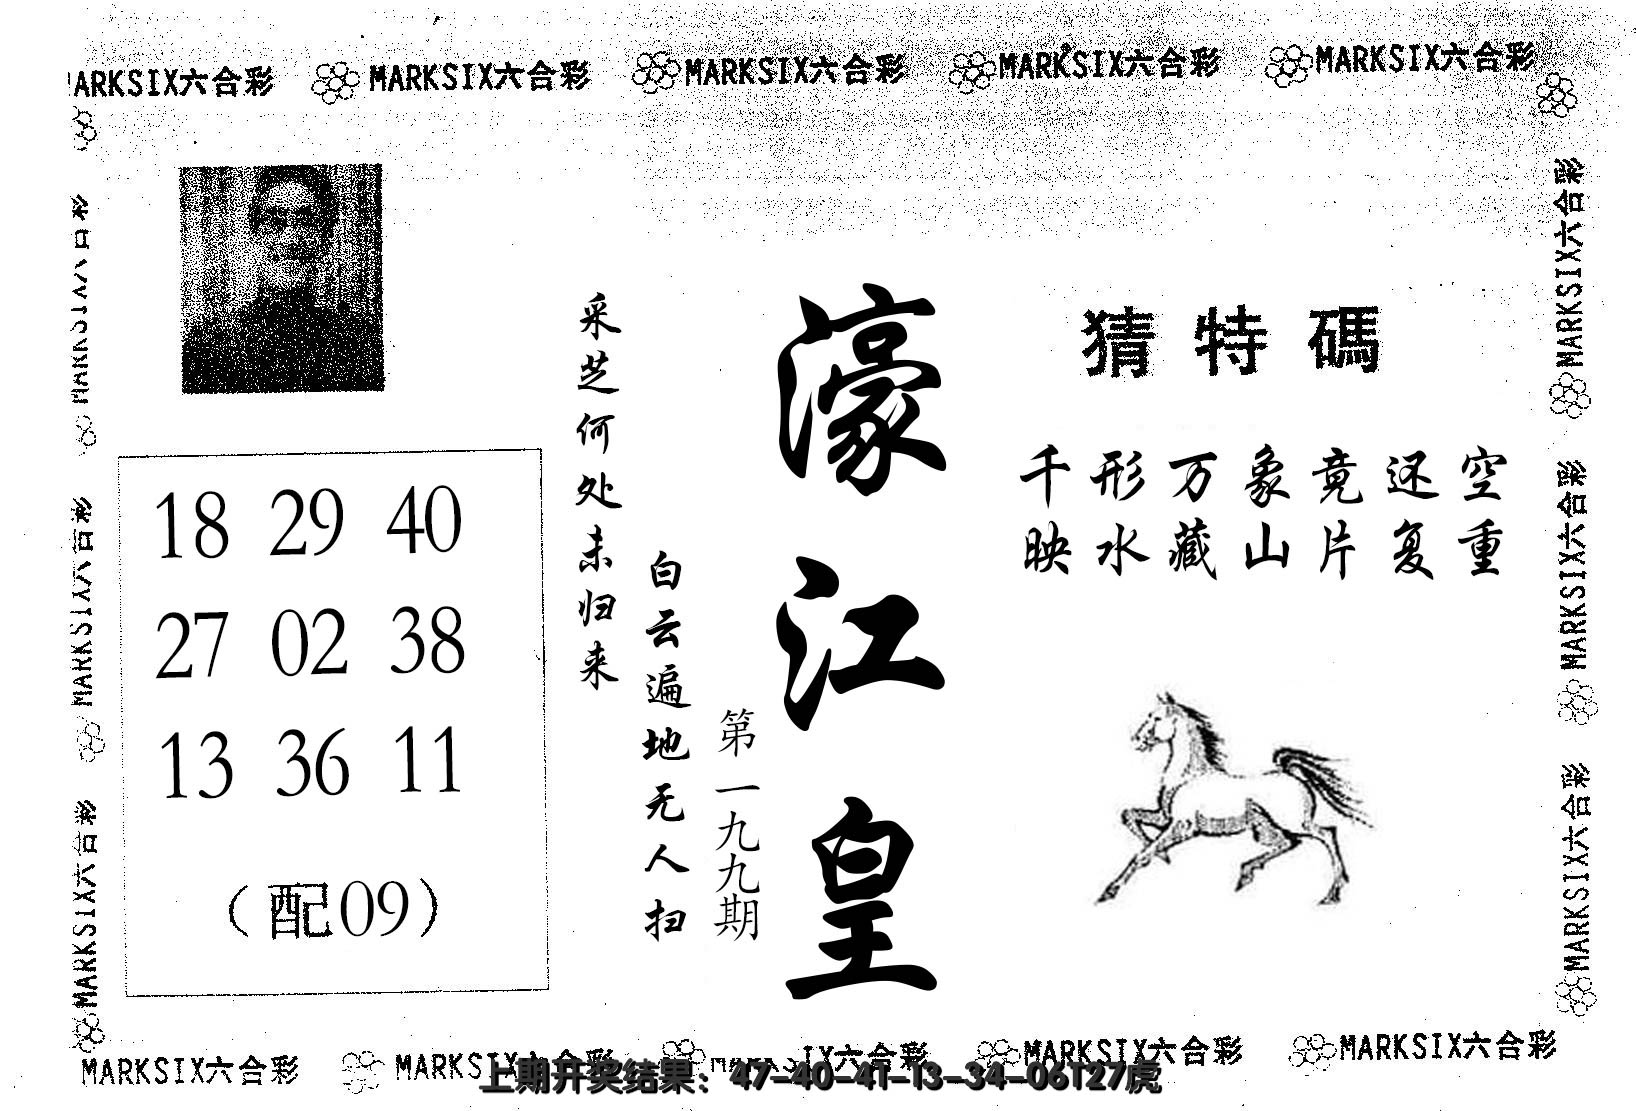 MARKSIX六合彩 MARKSIX六合彩 MARKSIX六合彩 MARKSIX六合彩
猜特碼
千形万象竟还空
映水藏山片复重
濠江皇
第一九九期
白云遍地无人扫
采芝何处未归来
18 29 40
27 02 38
13 36 11
（配09）
MARKSIX六合彩
MARKSIX六合彩
MARKSIX六合彩
MARKSIX六合彩
MARKSIX六合彩
MARKSIX六合彩 MARKSIX六合彩 MARKSIX六合彩 MARKSIX六合彩
上期开奖结果：47-40-41-13-34-06T27虎